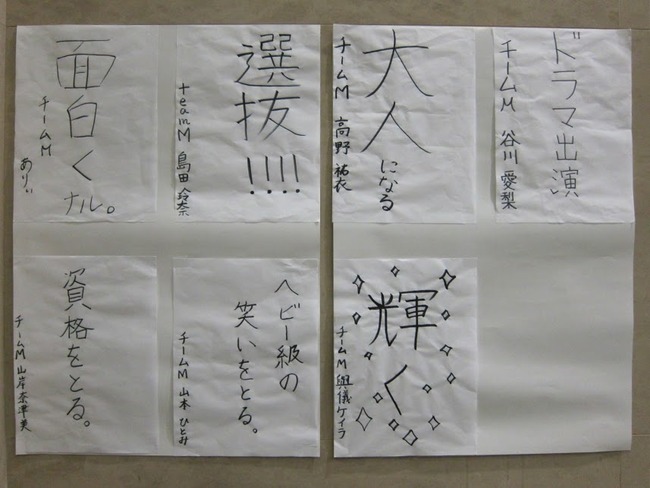 ドラマ出演
チームM 谷川愛梨
大人になる
チームM 高野祐衣
選抜!!!!
teamM 島田玲奈
面白くナル。
チームM
ありぃ
輝く
チームM 與儀ケイラ
ヘビー級の
笑いをとる。
チームM 山本ひとみ
資格をとる。
チームM 山岸奈津美